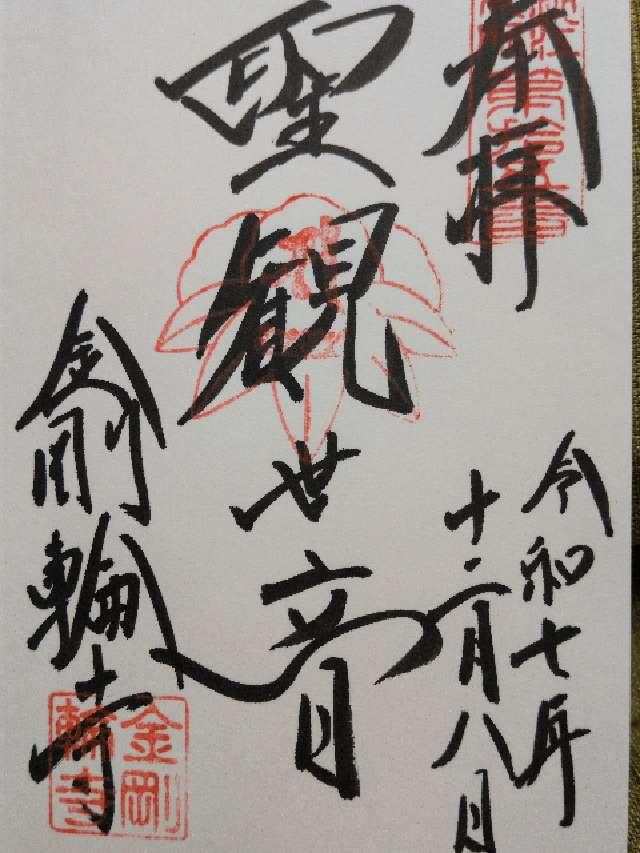 奉拝
令和七年
十二月八日
聖観世音
金剛輪寺
金剛
輪寺